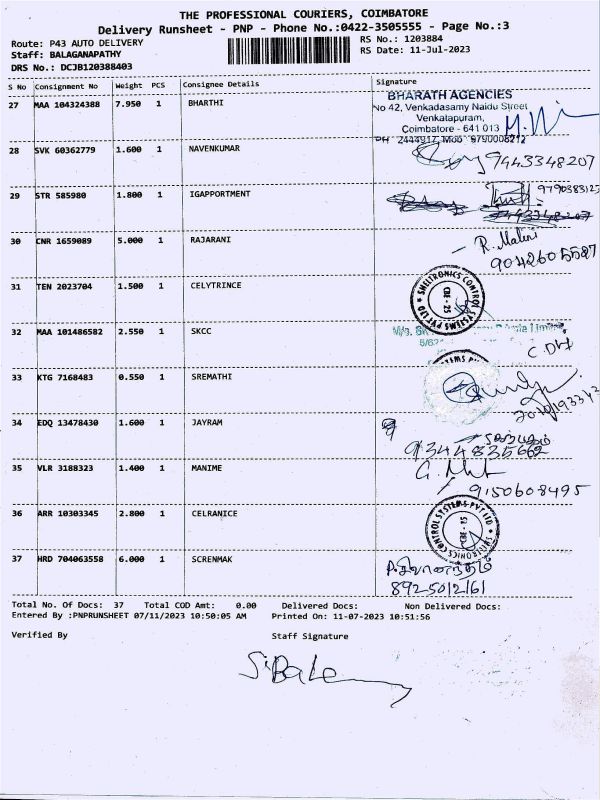 THE PROFESSIONAL COURIERS, COIMBATORE
Delivery Runsheet - PNP - Phone No.:0422-3505555 - Page No.:3
Route: P43 AUTO DELIVERY
RS No.: 1203884
Staff: BALAGANAPATHY
RS Date: 11-Jul-2023
DRS No.: DCJB120388403
S No Consignment No Weight PCS Consignee Details Signature
27 MAA 104324388 7.950 1 BHARTHI
BHARATH AGENCIES
No 42, Venkadasamy Naidu Street
Venkatapuram,
Coimbatore - 641 013
PH 2444917, Mob 9790008212
28 SVK 60362779 1.600 1 NAVENKUMAR
9443348207
29 STR 585980 1.800 1 IGAPPORTMENT
30 CNR 1659089 5.000 1 RAJARANI
R. Malini
9042605587
31 TEN 2023704 1.500 1 CELYTRINCE
SHELTRONICS CONTROL SYSTEMS PVT LTD
CBE - 25
32 MAA 101486582 2.550 1 SKCC
33 KTG 7168483 0.550 1 SREMATHI
34 EDQ 13478430 1.600 1 JAYRAM
9344835662
35 VLR 3188323 1.400 1 MANIME
9150608495
36 ARR 10303345 2.800 1 CELRANICE
SHELTRONICS CONTROL SYSTEMS PVT LTD
CBE - 25
37 HRD 704063558 6.000 1 SCRENMAK
8925012161
Total No. Of Docs: 37 Total COD Amt: 0.00 Delivered Docs: Non Delivered Docs:
Entered By :PNPRUNSHEET 07/11/2023 10:50:05 AM Printed On: 11-07-2023 10:51:56
Verified By Staff Signature